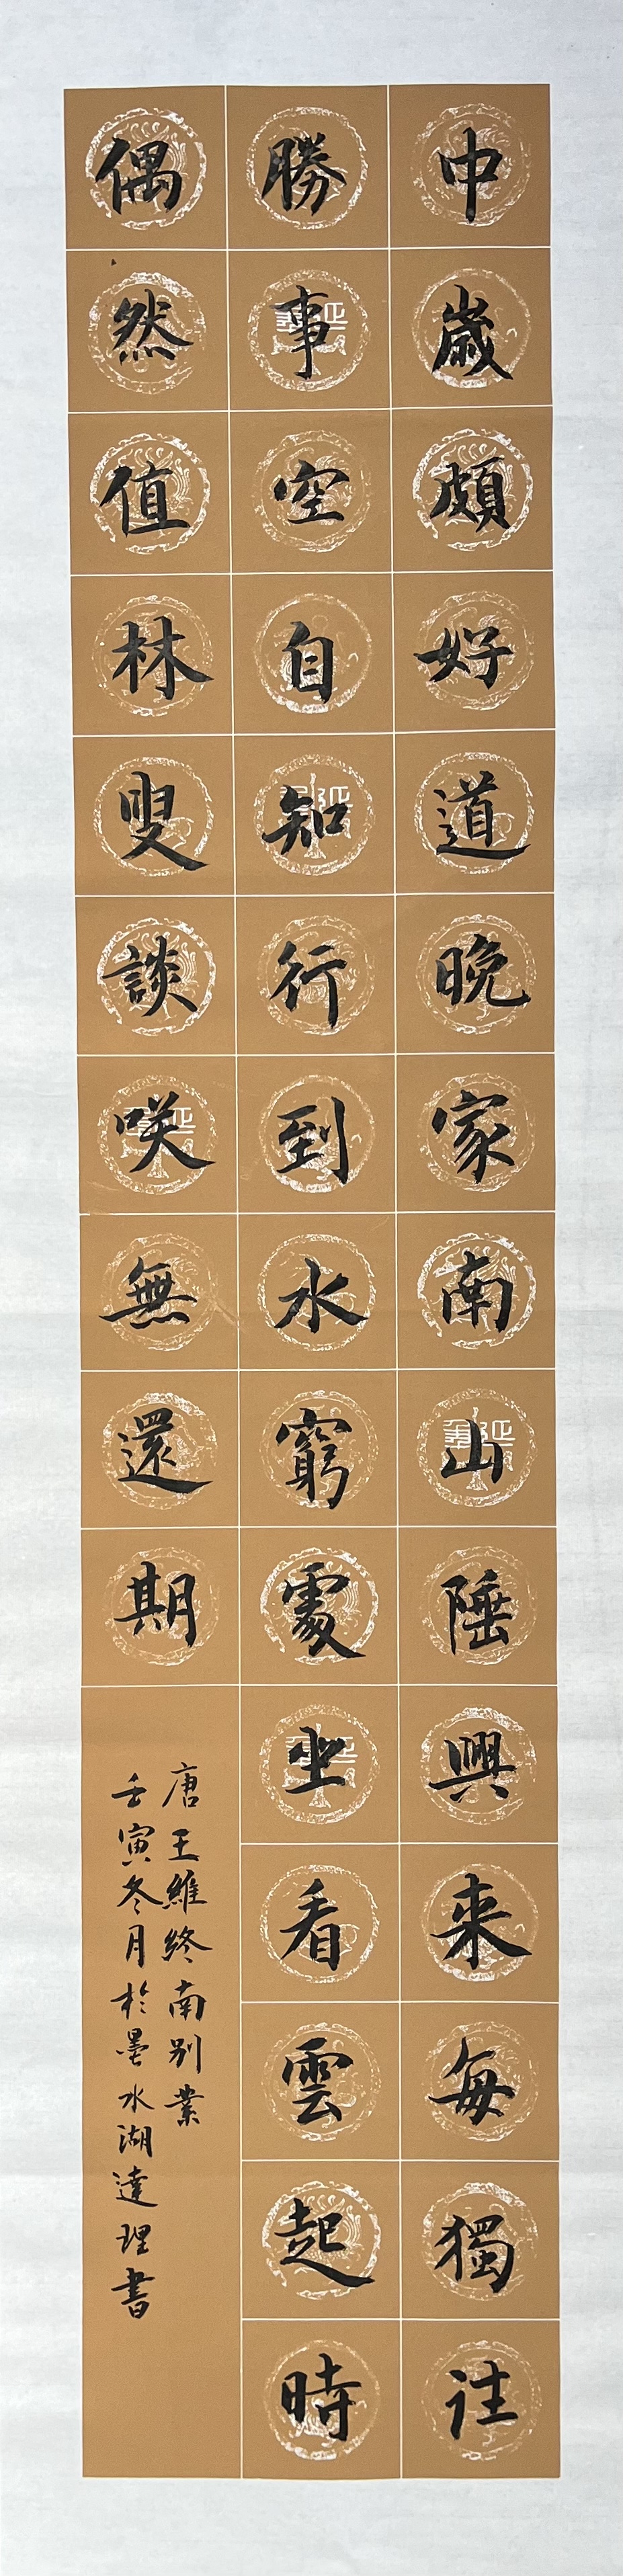 中歲頗好道晚家南山陲興來每獨往
勝事空自知行到水窮處坐看雲起時
偶然值林叟談咲無還期
唐王維終南别業
壬寅冬月於墨水湖達理書